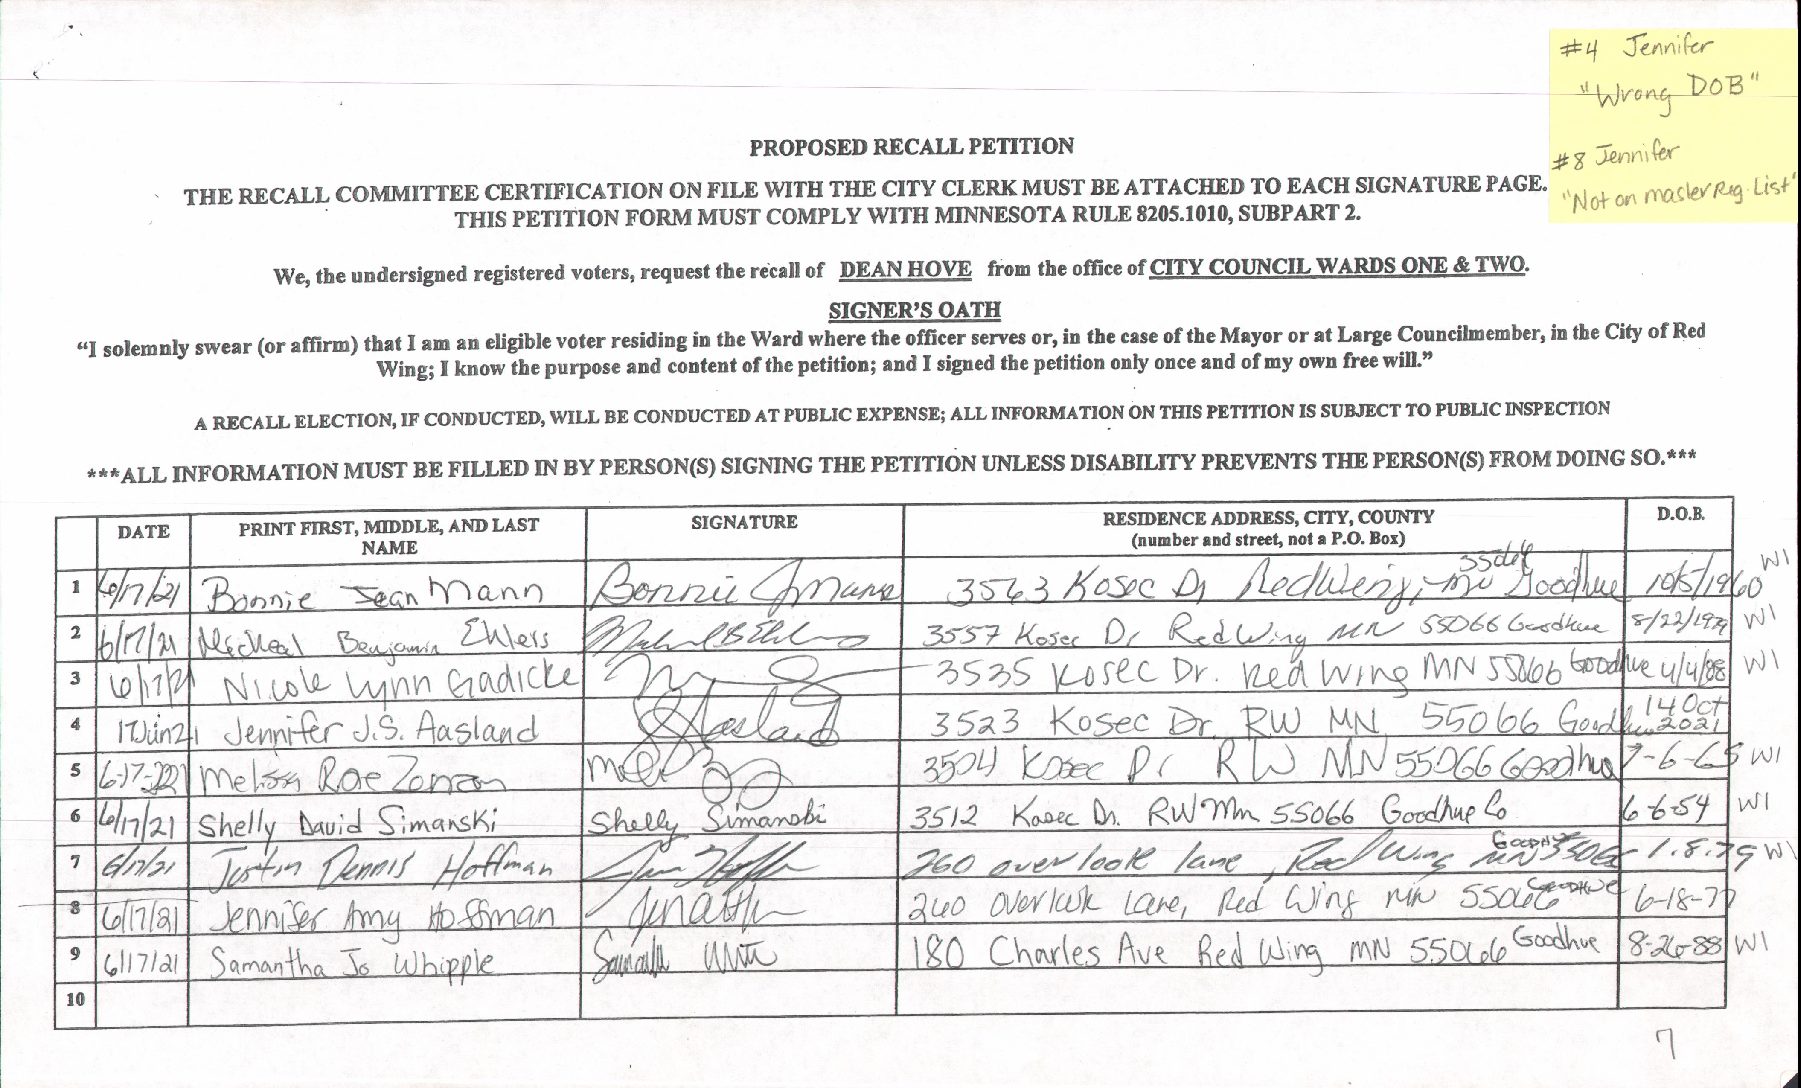 #4 Jennifer
"Wrong DOB"
#8 Jennifer
"Not on master Reg. List"
PROPOSED RECALL PETITION
THE RECALL COMMITTEE CERTIFICATION ON FILE WITH THE CITY CLERK MUST BE ATTACHED TO EACH SIGNATURE PAGE.
THIS PETITION FORM MUST COMPLY WITH MINNESOTA RULE 8205.1010, SUBPART 2.
We, the undersigned registered voters, request the recall of DEAN HOVE from the office of CITY COUNCIL WARDS ONE & TWO.
SIGNER'S OATH
"I solemnly swear (or affirm) that I am an eligible voter residing in the Ward where the officer serves or, in the case of the Mayor or at Large Councilmember, in the City of Red
Wing; I know the purpose and content of the petition; and I signed the petition only once and of my own free will."
A RECALL ELECTION, IF CONDUCTED, WILL BE CONDUCTED AT PUBLIC EXPENSE; ALL INFORMATION ON THIS PETITION IS SUBJECT TO PUBLIC INSPECTION
***ALL INFORMATION MUST BE FILLED IN BY PERSON(S) SIGNING THE PETITION UNLESS DISABILITY PREVENTS THE PERSON(S) FROM DOING SO.***
DATE PRINT FIRST, MIDDLE, AND LAST NAME SIGNATURE RESIDENCE ADDRESS, CITY, COUNTY (number and street, not a P.O. Box) D.O.B.
1 6/17/21 Bonnie Jean Mann Bonnie J Mann 3563 Kosec Dr Red Wing, Mn 55066 Goodhue 10/5/1960 WI
2 6/17/21 Micheal Benjamin Ehlers 3557 Kosec Dr Red Wing MN 55066 Goodhue 8/22/1979 WI
3 6/17/21 Nicole Lynn Gadicke 3535 Kosec Dr. Red Wing MN 55066 Goodhue 4/4/88 WI
4 17Jun21 Jennifer J.S. Aasland Aasland 3523 Kosec Dr. RW MN 55066 Goodhue 14 Oct 2021
5 6-17-21 Melissa Rae 3504 Kosec Dr RW MN 55066 Goodhue 7-6-65 WI
6 6/17/21 Shelly David Simanski Shelly Simanski 3512 Kosec Dr. RW Mn 55066 Goodhue Co 6-6-54 WI
7 6/17/21 Justin Dennis Hoffman 260 overlook lane, Red Wing MN 55066 Goodhue 1.8.79 WI
8 6/17/21 Jennifer Amy Hoffman 260 Overlook Lane, Red Wing MN 55066 Goodhue 6-18-77
9 6/17/21 Samantha Jo Whipple Samantha 180 Charles Ave Red Wing MN 55066 Goodhue 8-26-88 WI
10
7